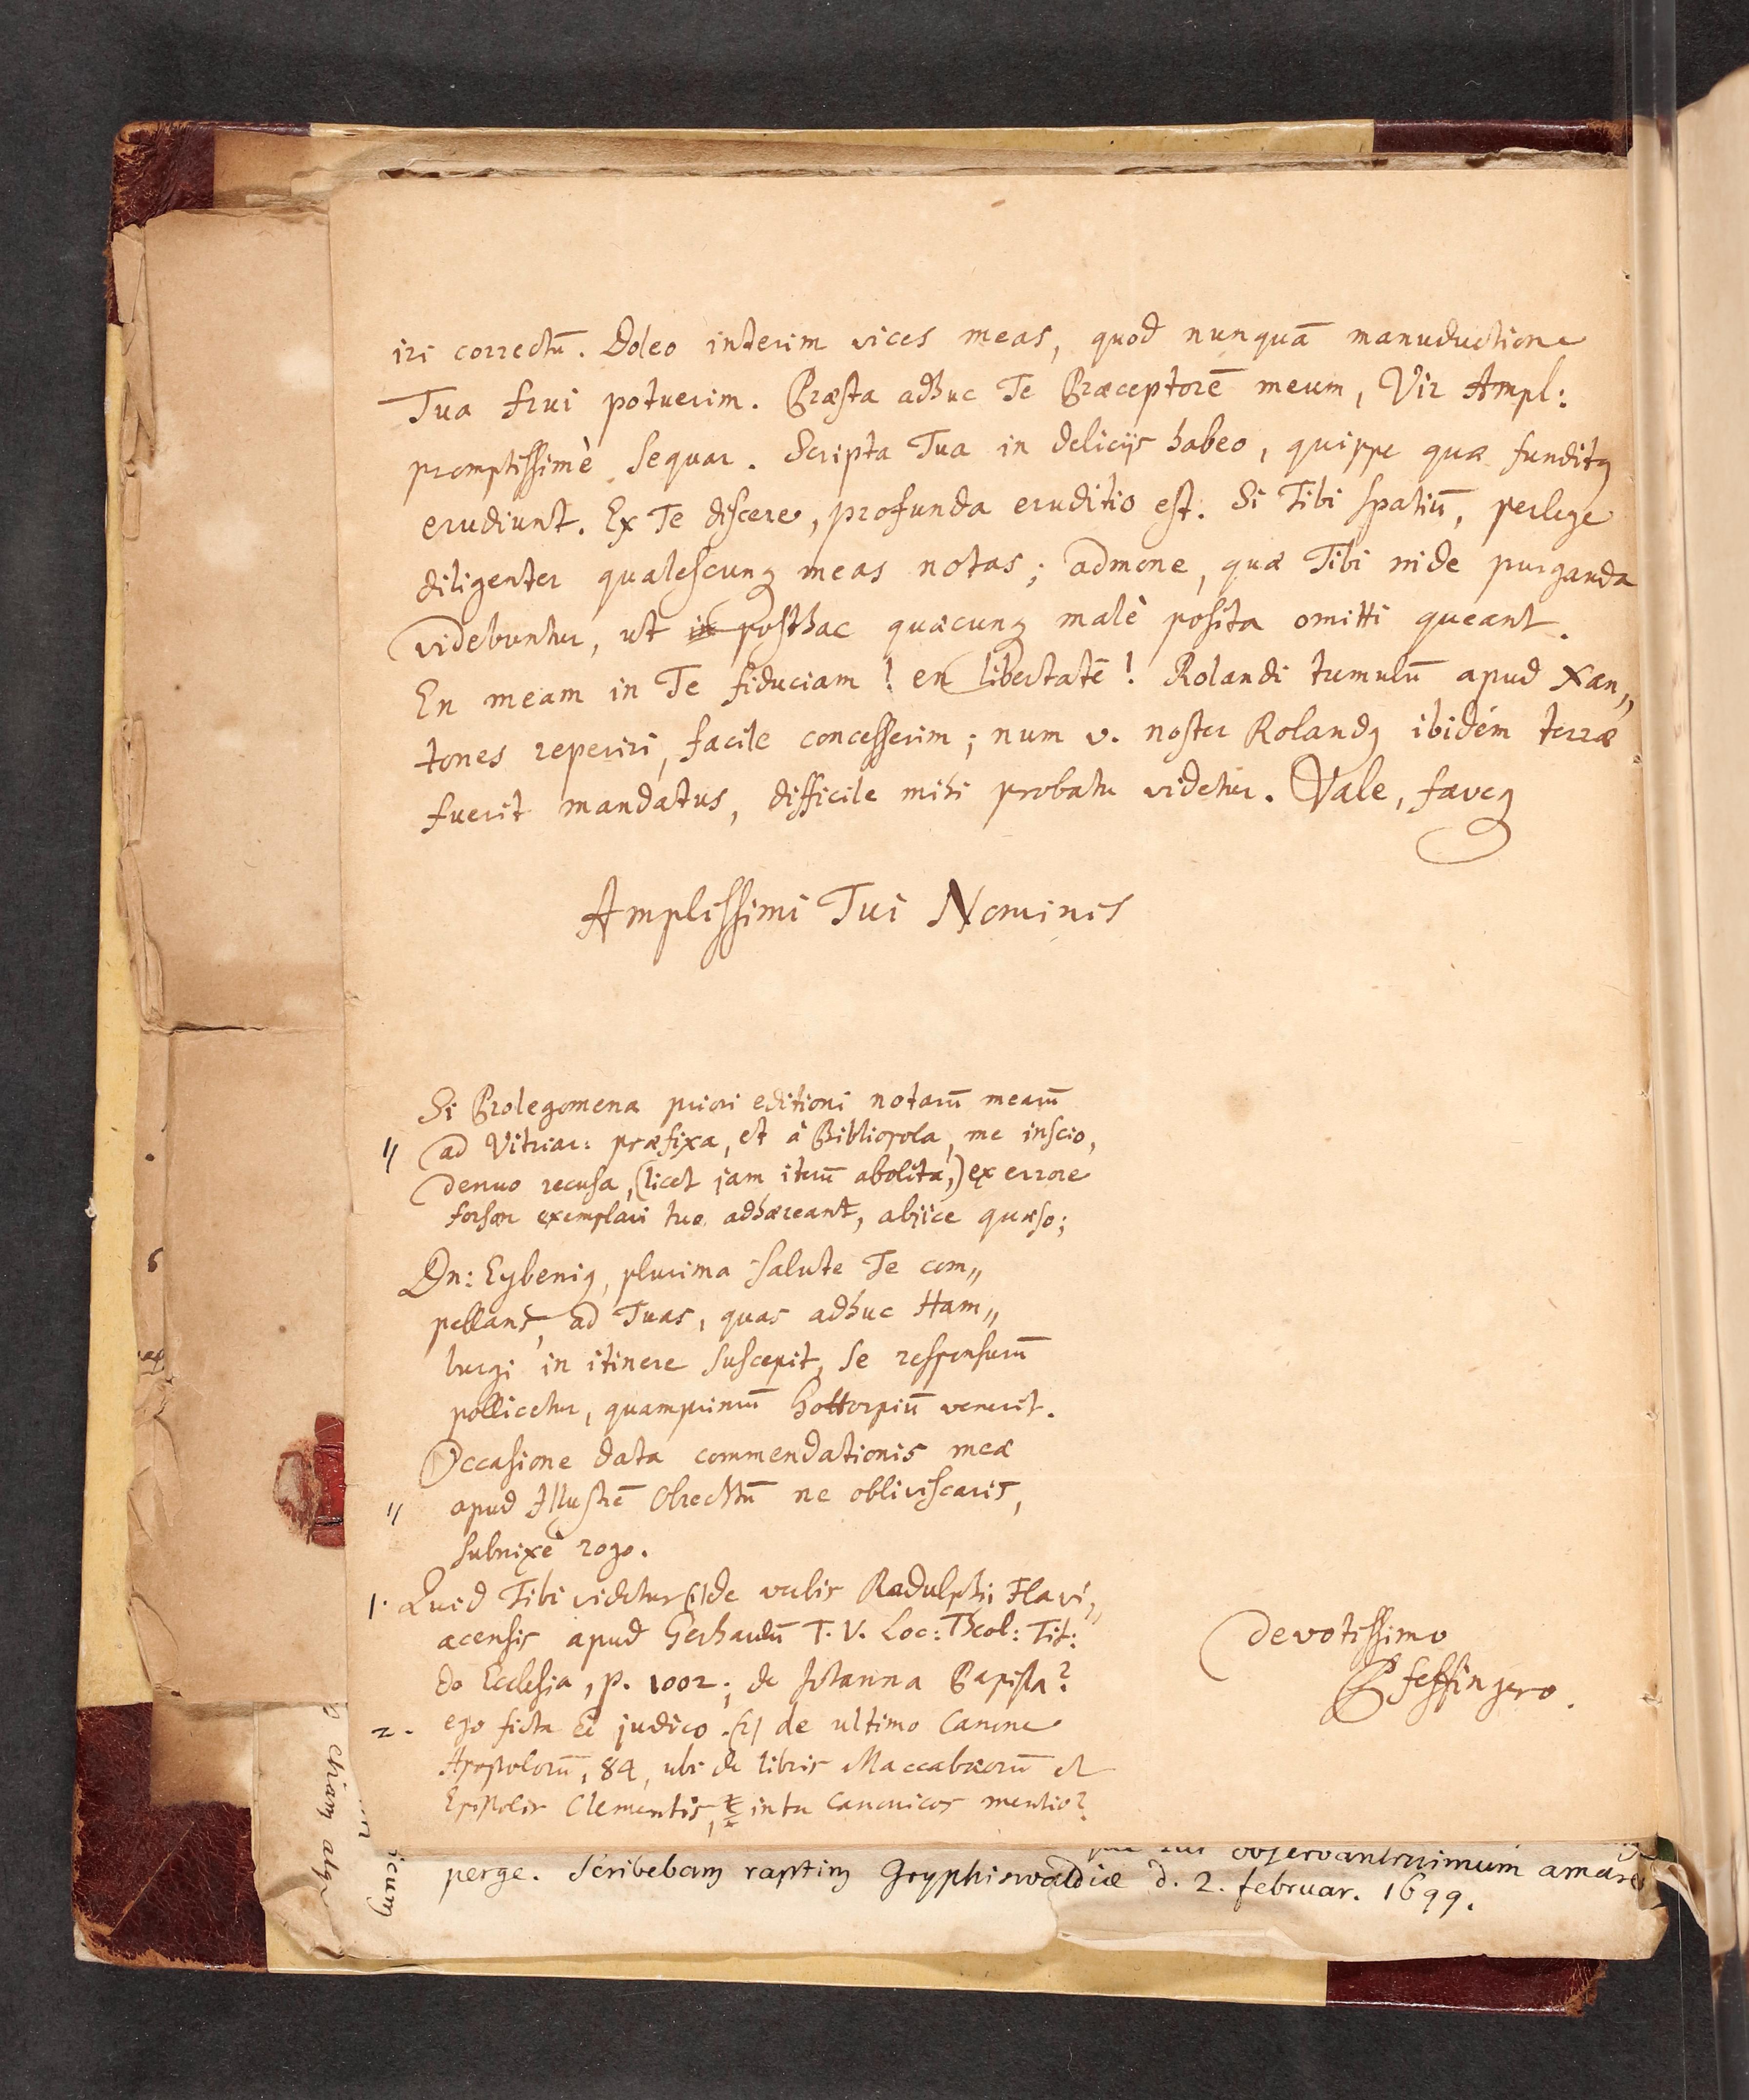 iri correctū. Doleo interim vices meas, quod nunquā manuductione
Tua frui potuerim. Præsta adhuc Te Præceptorē meum, Vir Ampl:
promptissimè sequar. Scripta Tua in deliciis habeo, quippe quæ funditq
erudiunt. Ex Te discere, profunda eruditio est. Si Tibi spatiū, perlege
diligenter qualescunq meas notas; admone, quæ Tibi inde purganda
videbuntur, ut posthac quæcunq malè posita omitti queant.
En meam in Te fiduciam! en libertatē! Rolandi tumulū apud Xan„
tones reperiri, facile concesserim; num v. noster Rolandq ibidém terræ
fuerit mandatus, difficile mihi probatu videtur. Vale, faveq
Amplissimi Tui Nominis
Si Prolegomena priori editioni notarū mearū
〃 ad Vitriar: præfixa, et à Bibliopola, me inscio,
denuo recusa, (licet jam iterū abolita,) ex errore
forsan exemplari tuo adhæreant, abjice quæso;
Dn: Eybeniq, plurima salute Te com„
pellans, ad Tuas, quas adhuc Ham„
burgi in itinere suscepit, se responsurū
pollicetur, quamprimū Gottorpiū venerit.
Occasione data commendationis meæ
〃 apud Illustrē Obrechtū ne obliviscaris,
subnixè rogo.
1. Quid Tibi videtur (1) de verbis Radulphi Flavi„
acensis apud Gerhardū T. V. Loc: Theol: Tit:
de Ecclesia, p. 1002; de Johanna Papissa?
2. ego ficta judico. (2) de ultimo Canone
Apostolorū, 84, ubi de libris Maccabæorū et
Epistolis Clementis, inter canonicos mentio?
devotissimo
Pfeffingero.
observantissimum amare
perge. Scribebam raptim Gryphiswaldiæ d. 2. februar. 1699.
etiam atq
icum